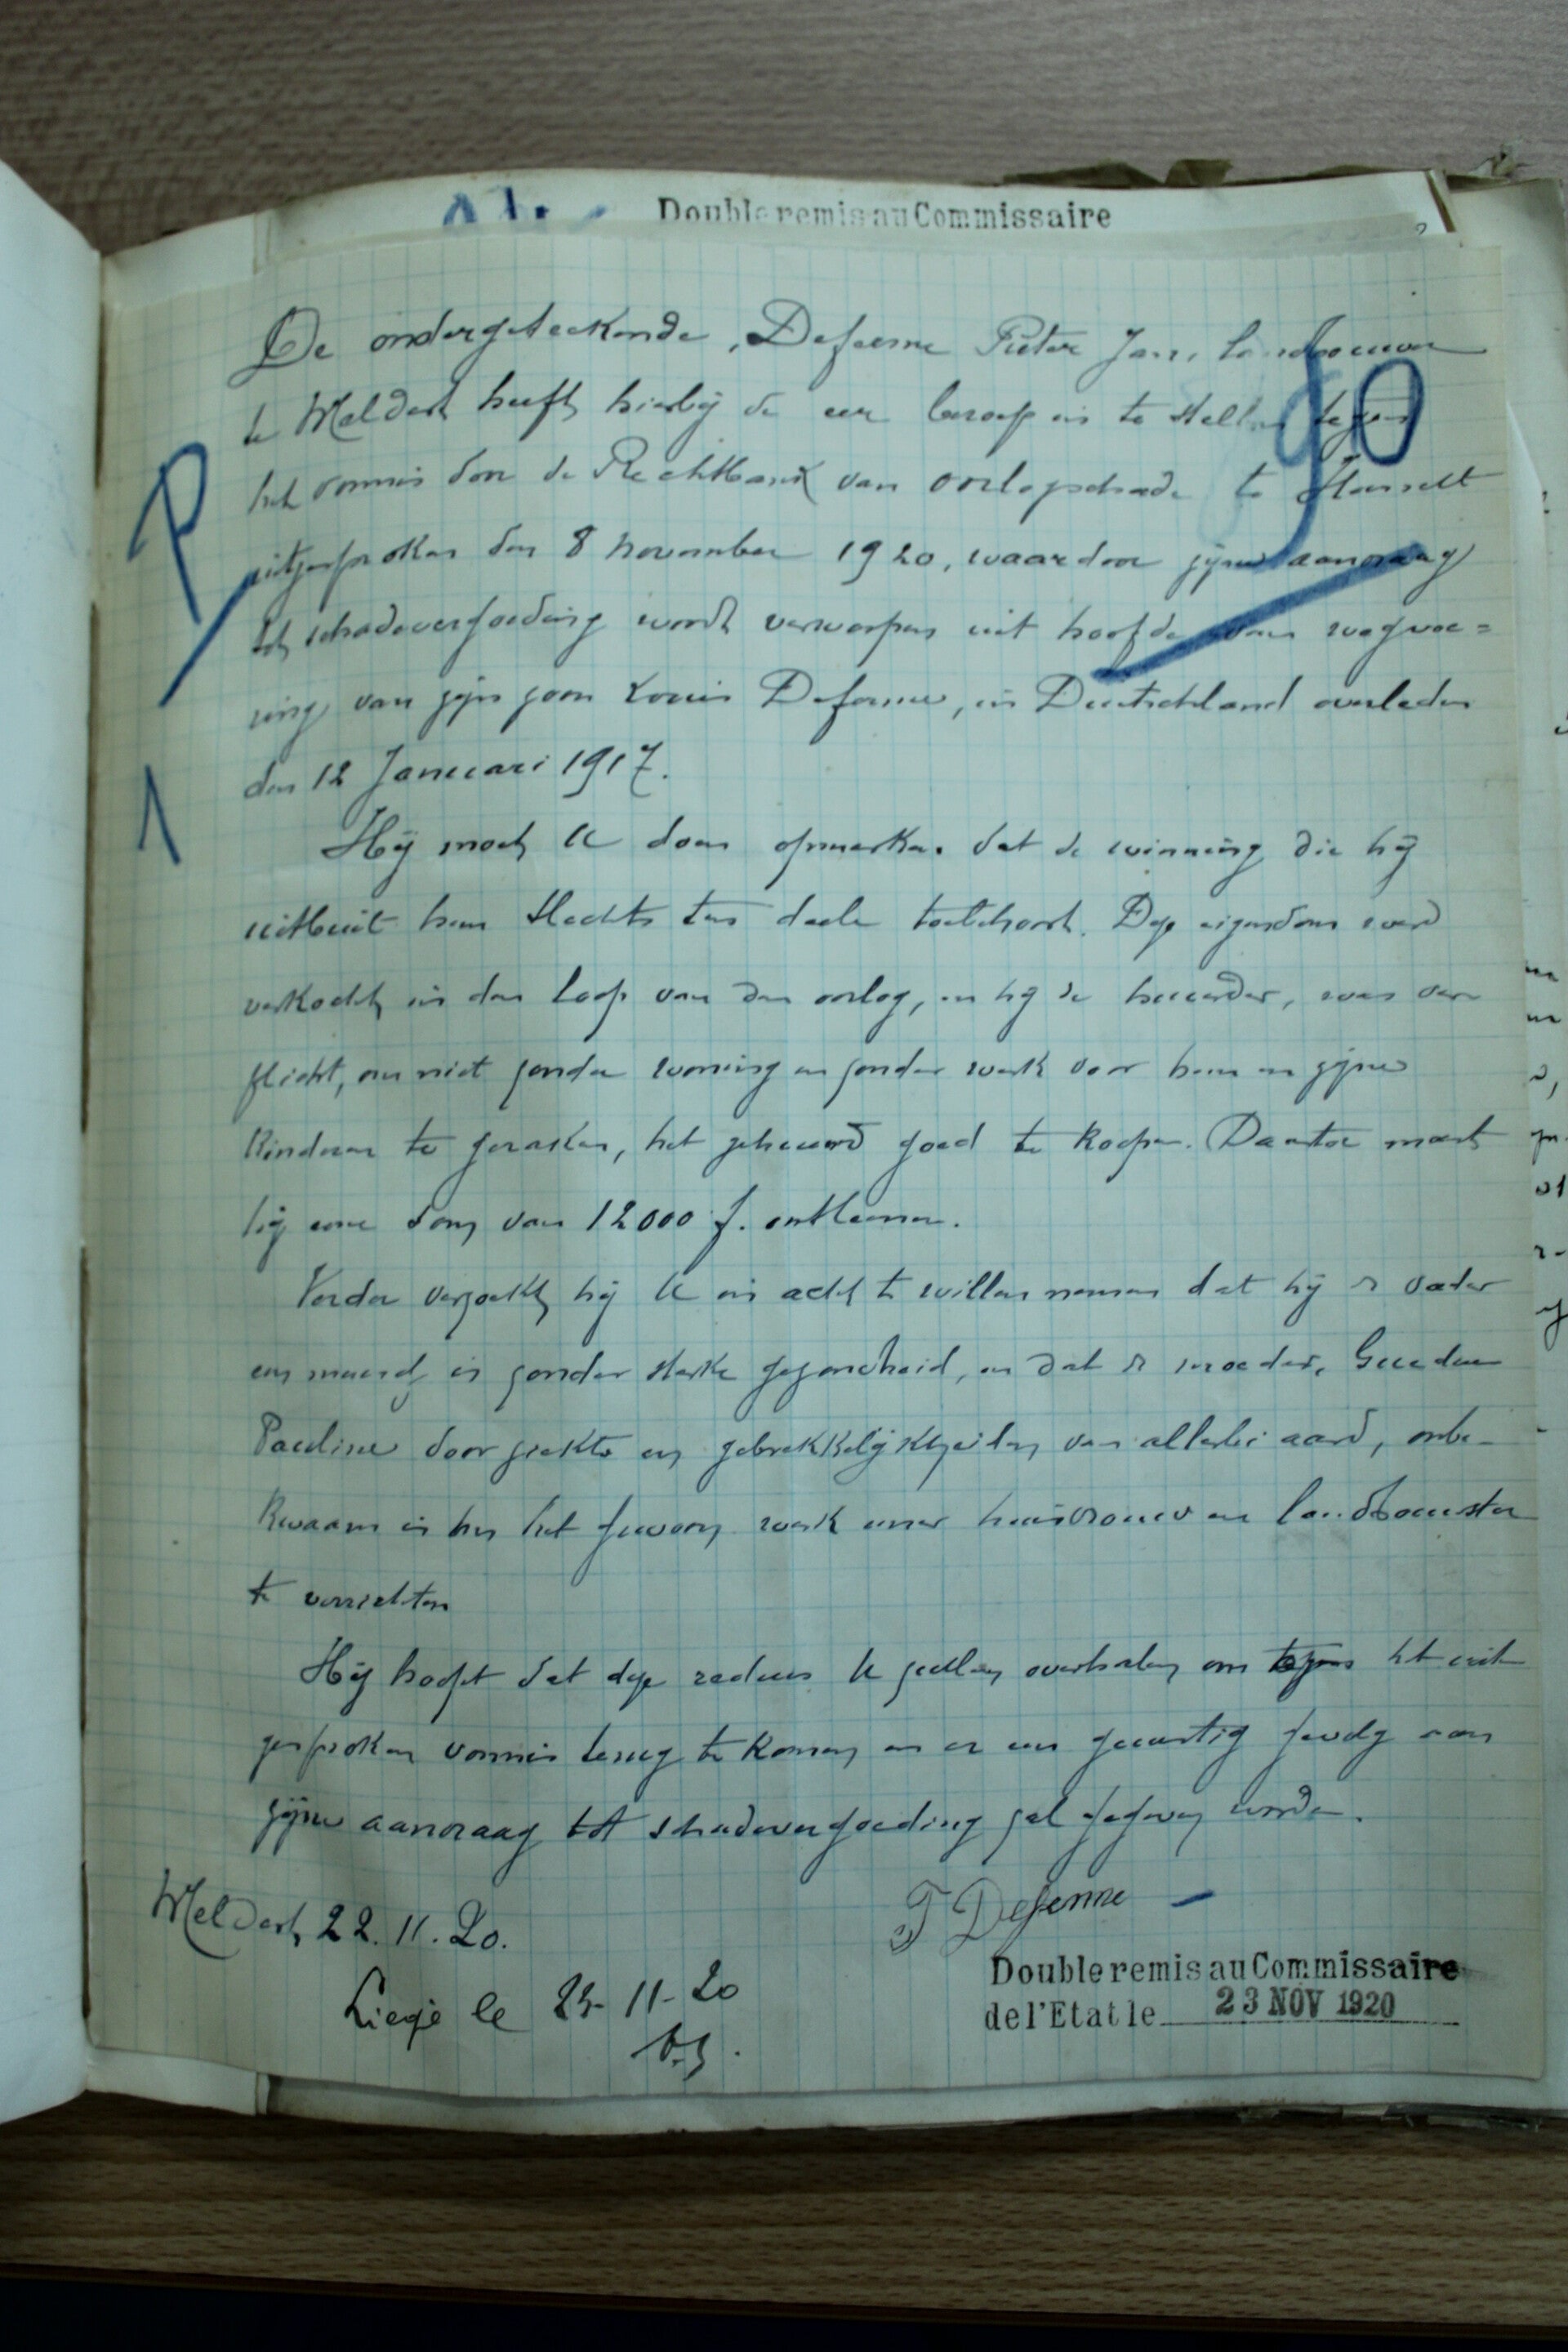 Double remis au Commissaire
De ondergeteekende, Defenne Pieter Jan, landbouwer
te Meldert heeft hierbij de eer beroep in te stellen tegen
90
het vonnis door de Rechtbank van oorlogschade te Hasselt
P
uitgesproken den 8 november 1920, waardoor zijne aanvraag
tot schadevergoeding wordt verworpen uit hoofde van wegvoe=
ring van zijn zoon Louis Defenne, in Deutschland overleden
den 12 Januari 1917.
1
Hij moet U doen opmerken dat de winning die hij
uitbuit hem slechts ten deele toebehoort. Deze eigendom werd
verkocht in den loop van den oorlog, en hij de huurder, was ver-
plicht, om niet zonder woning en zonder werk voor hem en zijne
kinderen te geraken, het gehuurd goed te koopen. Daartoe moest
hij eene som van 12000 f. ontleenen.
Verder verzoekt hij U in acht te willen nemen dat hij de vader
en zonder sterke gezondheid, en dat de moeder,
Pauline door ziekte en gebrekkelijkheden van allerlei aard, onbe-
kwaam is om het gewoon werk eener huisvrouw en landbouwster
te verrichten
Hij hoopt dat deze redens U zullen overhalen om tegen het uit
gesproken vonnis terug te komen en er een gunstig gevolg aan
zijne aanvraag tot schadevergoeding zal gegeven worden.
Meldert, 22.11.20.
P Defenne
Liege le 23-11-20
Double remis au Commissaire
de l'Etat le 23 NOV 1920